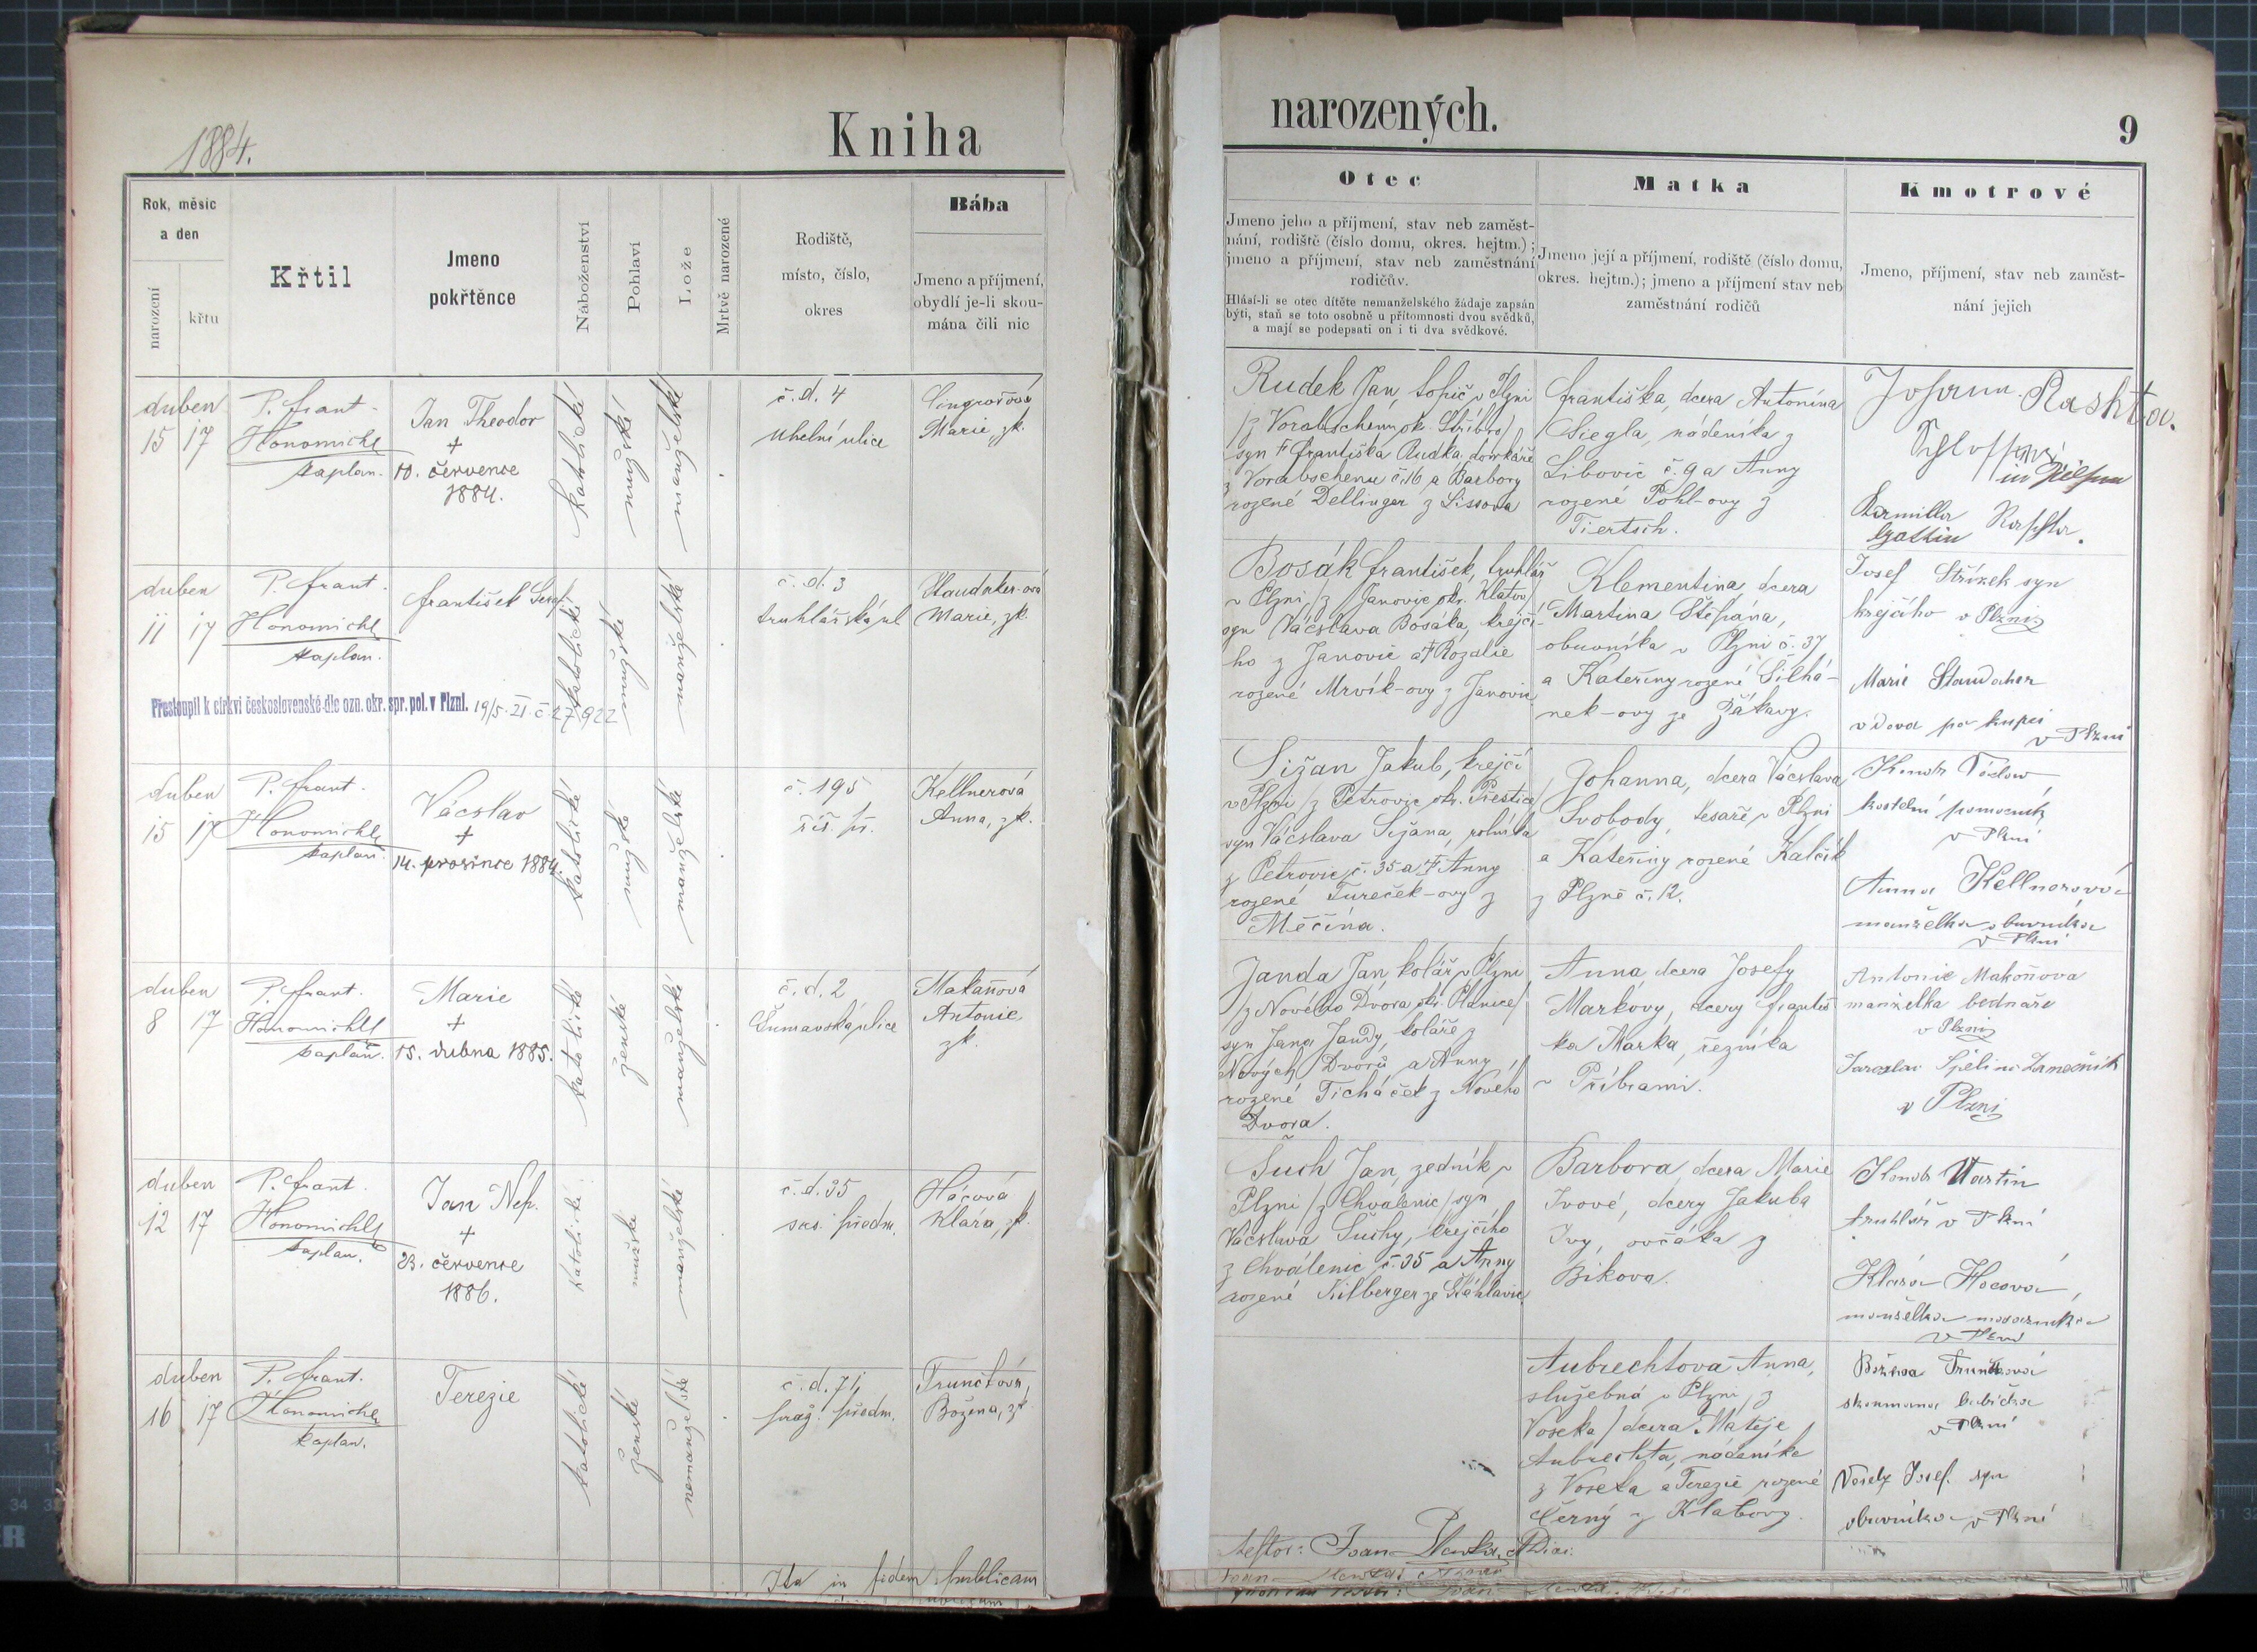 1884.
Kniha
Rok, měsíc
a den
narození
křtu
Křtil
Jmeno
pokřtěnce
Náboženství
Pohlaví
Lože
Mrtvě narozené
Rodiště,
místo, číslo,
okres
Bába
Jmeno a příjmení,
obydlí je-li skou-
mána čili nic
duben
15 17
P. Frant.
Honomichl
kaplan.
Jan Theodor
+
10. července
1884.
katolické
mužské
manželské
č. d. 4
Uhelní ulice
Marie, zk.
duben
11 17
P. Frant.
Honomichl
kaplan.
František Seraf.
katolické
mužské
manželské
č. d. 3
truhlářská ul
Staudaher-ová
Marie, zk.
Přestoupil k církvi československé dle ozn. okr. spr. pol. v Plzni. 19/5. 21. č. 27922
duben
15 17
P. Frant.
Honomichl
kaplan.
Vácslav
+
14. prosince 1884.
katolické
mužské
manželské
č. 195
říš. př.
Kellnerová
Anna, zk.
duben
8 17
P. Frant.
Honomichl
kaplan.
Marie
+
15. dubna 1885.
katolické
ženské
manželské
č. d. 2
Šumavská ulice
Makaňová
Antonie,
zk.
duben
12 17
P. Frant.
Honomichl
kaplan.
Jan Nep.
+
23. července
1886.
katolické
mužské
manželské
č. d. 35
sas. předm.
Hácová
Klára, zk.
duben
16 17
P. Frant.
Honomichl
kaplan.
Terezie
katolické
ženské
nemanželské
č. d. 71
praž. předm.
Trunčková
Božena, zk.
Ita in fidem publicam
narozených.
9
Otec
Jmeno jeho a příjmení, stav neb zaměst-
nání, rodiště (číslo domu, okres. hejtm.);
jmeno a příjmení, stav neb zaměstnání
rodičův.
Hlásí-li se otec dítěte nemanželského žádaje zapsán
býti, staň se toto osobně u přítomnosti dvou svědků,
a mají se podepsati on i ti dva svědkové.
Matka
Jmeno její a příjmení, rodiště (číslo domu,
okres. hejtm.); jmeno a příjmení stav neb
zaměstnání rodičů
Kmotrové
Jmeno, příjmení, stav neb zaměst-
nání jejich
Rudek Jan, topič v Plzni
/z Vorabschenu, ok. Stříbro/
syn † Františka Rudka, domkáře
z Vorabschenu č. 16 a Barbory
rozené Dellinger z Lissova
Františka, dcera Antonína
Siegla, nádeníka z
Libovic č. 9 a Anny
rozené Pohl-ovy z
Tiertsch.
Johann Rashta.
Schlosser
in Pilsen
Karmilla Raschta.
Gattin
Bosák František, truhlář
v Plzni, /z Janovic okr. Klatov/
syn Vácslava Bosáka, krejčí-
ho z Janovic a † Rozalie
rozené Mrvík-ovy z Janovic
Klementina, dcera
Martina Štěpána,
obuvníka v Plzni č. 37
a Kateřiny rozené Šilhá-
nek-ovy ze Žákavy.
Josef Střízek syn
krejčího v Plzni
Marie Staudaher
vdova po kupci
v Plzni
Sižan Jakub, krejčí
v Plzni /z Petrovic okr. Přeštice/
syn Vácslava Sižana, rolníka
z Petrovic č. 35 a † Anny
rozené Tureček-ovy z
Měčína.
Johanna, dcera Vácslava
Svobody, tesaře v Plzni
a Kateřiny rozené Kalčík
z Plzně č. 12.
kostelní pomocník
v Plzni
Anna Kellnerová
manželka obuvníka
v Plzni
Janda Jan, kolář v Plzni
/z Nového Dvora okr. Planice/
syn Jana Jandy, koláře z
Nových Dvorů a Anny
rozené Ticháček z Nového
Dvora.
Anna, dcera Josefy
Markovy, dcery Františ
ka Marka, řezníka
v Příbrami.
Antonie Makoňova
manželka bednáře
v Plzni
Jaroslav Spělina Zámečník
v Plzni
Šuch Jan, zedník v
Plzni /z Chválenic/ syn
Vácslava Šuchy, krejčího
z Chválenic č. 35 a Anny
rozené Kilberger ze Štěhlavic
Barbora dcera Marie
Ivové, dcery Jakuba
Ivy, ovčáka z
Bíkova.
Martin
truhlář v Plzni
Klára Hocová,
manželka
v Plzni
Aubrechtova Anna,
služebná v Plzni, z
Voseka / dcera Matěje
Aubrechta, nádeníka
z Voseka a Terezie rozené
Černý z Klabavy.
Božena Trunčková
skoumaná babička
v Plzni
Veselý Josef. syn
obuvníka v Plzni